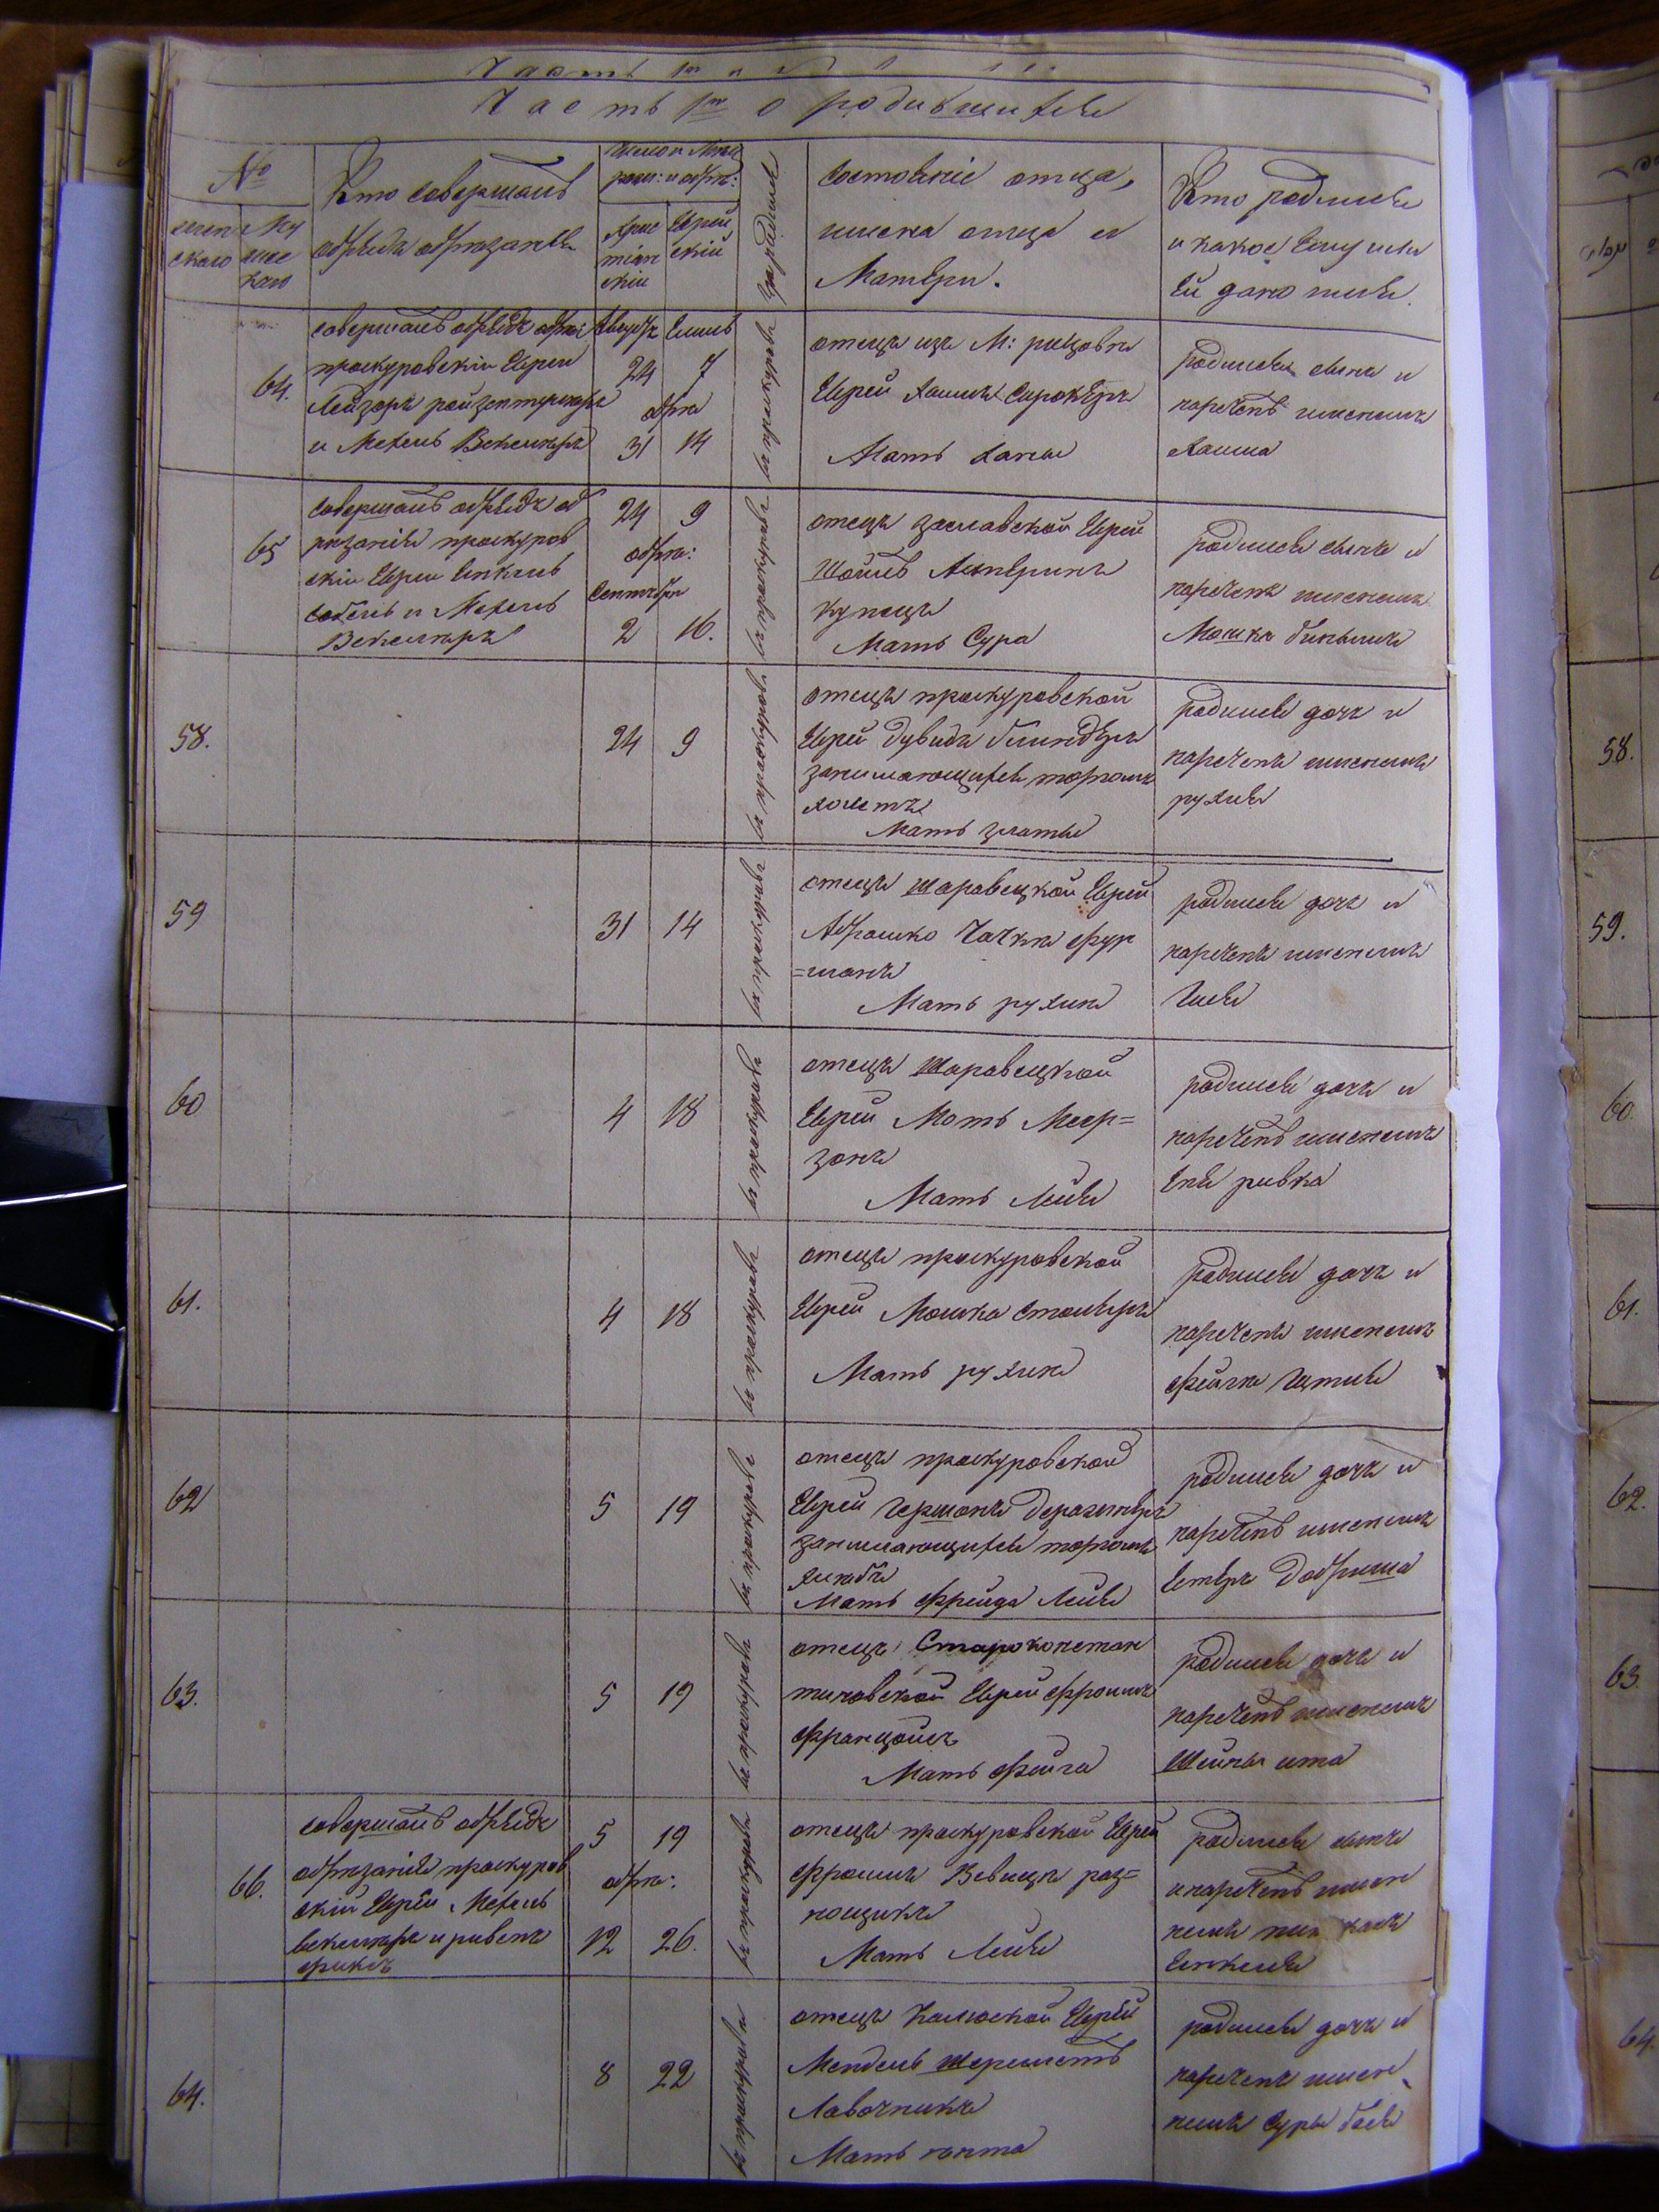 Часть 1ᵃ о родившихся
№
женскаго
Мужескаго
Кто совершалъ
обрядъ обрѣзанія
число и Мѣц
рожд: и обрѣз:
Христіанскій
Еврейскій
Гдѣ родился
Состояніе отца,
имена отца и
Матери.
Кто родился
и какое Ему или
Ей дано имя.
64.
совершалъ обрядъ обрѣз:
проскуровскій Еврей
Лейзоръ
и Мехель Векслеръ
Августъ Елиль
24 7
обрѣз
31 14
въ проскуровѣ
отецъ изъ М:
Еврей Хаимъ Сирокеръ
Мать Ханы
родился сынъ и
нареченъ именемъ
65
совершалъ обрядъ об
рѣзанія проскуров
скій Еврей Янкель
Собель и Мехель
Векслеръ
24 9
обрѣз:
Сентября
2 16.
въ проскуровѣ
отецъ заславской Еврей
Шоилъ Альперинъ
купецъ
Мать Сура
родился сынъ и
нареченъ именемъ
Мошка
58.
24 9
въ проскуровѣ
отецъ проскуровской
Еврей Дувидъ
занимающійся торгомъ
Мать златы
родился дочь и
нареченъ именемъ
рухля
59
31 14
въ проскуровѣ
отецъ шаровецкой Еврей
Абрамко Чачка фур
=манъ
Мать рухля
родился дочь и
нареченъ именемъ
60
4 18
въ проскуровѣ
отецъ шаровецкой
Еврей Моть Меер=
зонъ
Мать Лея
родился дочь и
нареченъ именемъ
Еня ривка
61.
4 18
въ проскуровѣ
отецъ проскуровской
Еврей Мошка Столяръ
Мать рухля
родился дочь и
нареченъ именемъ
фейга
62
5 19
въ проскуровѣ
отецъ проскуровской
Еврей гершонъ Деражнеръ
занимающійся торгомъ
хлѣба
Мать фрейда Лея
родился дочь и
нареченъ именемъ
Естеръ Добриша
63.
5 19
въ проскуровѣ
отецъ Староконстан
тиновской Еврей фроимъ
францойзъ
Мать фейга
родился дочь и
нареченъ именемъ
Шейна ита
66.
совершалъ обрядъ
обрѣзанія проскуров
скій Еврей Мехель
векслеръ и рувенъ
фуксъ
5 19
обрѣз:
12 26.
въ проскуровѣ
отецъ проскуровской Еврей
фроимъ Вевицъ раз=
нощикъ
Мать Лея
родился сынъ
и нареченъ имен
немъ
64.
8 22
въ проскуровѣ
отецъ Калюской Еврей
Мендель шереметъ
Лавочникъ
Мать гитта
родился дочь и
нареченъ имен
немъ Суры бася
58.
59.
60
61.
62.
63
64.